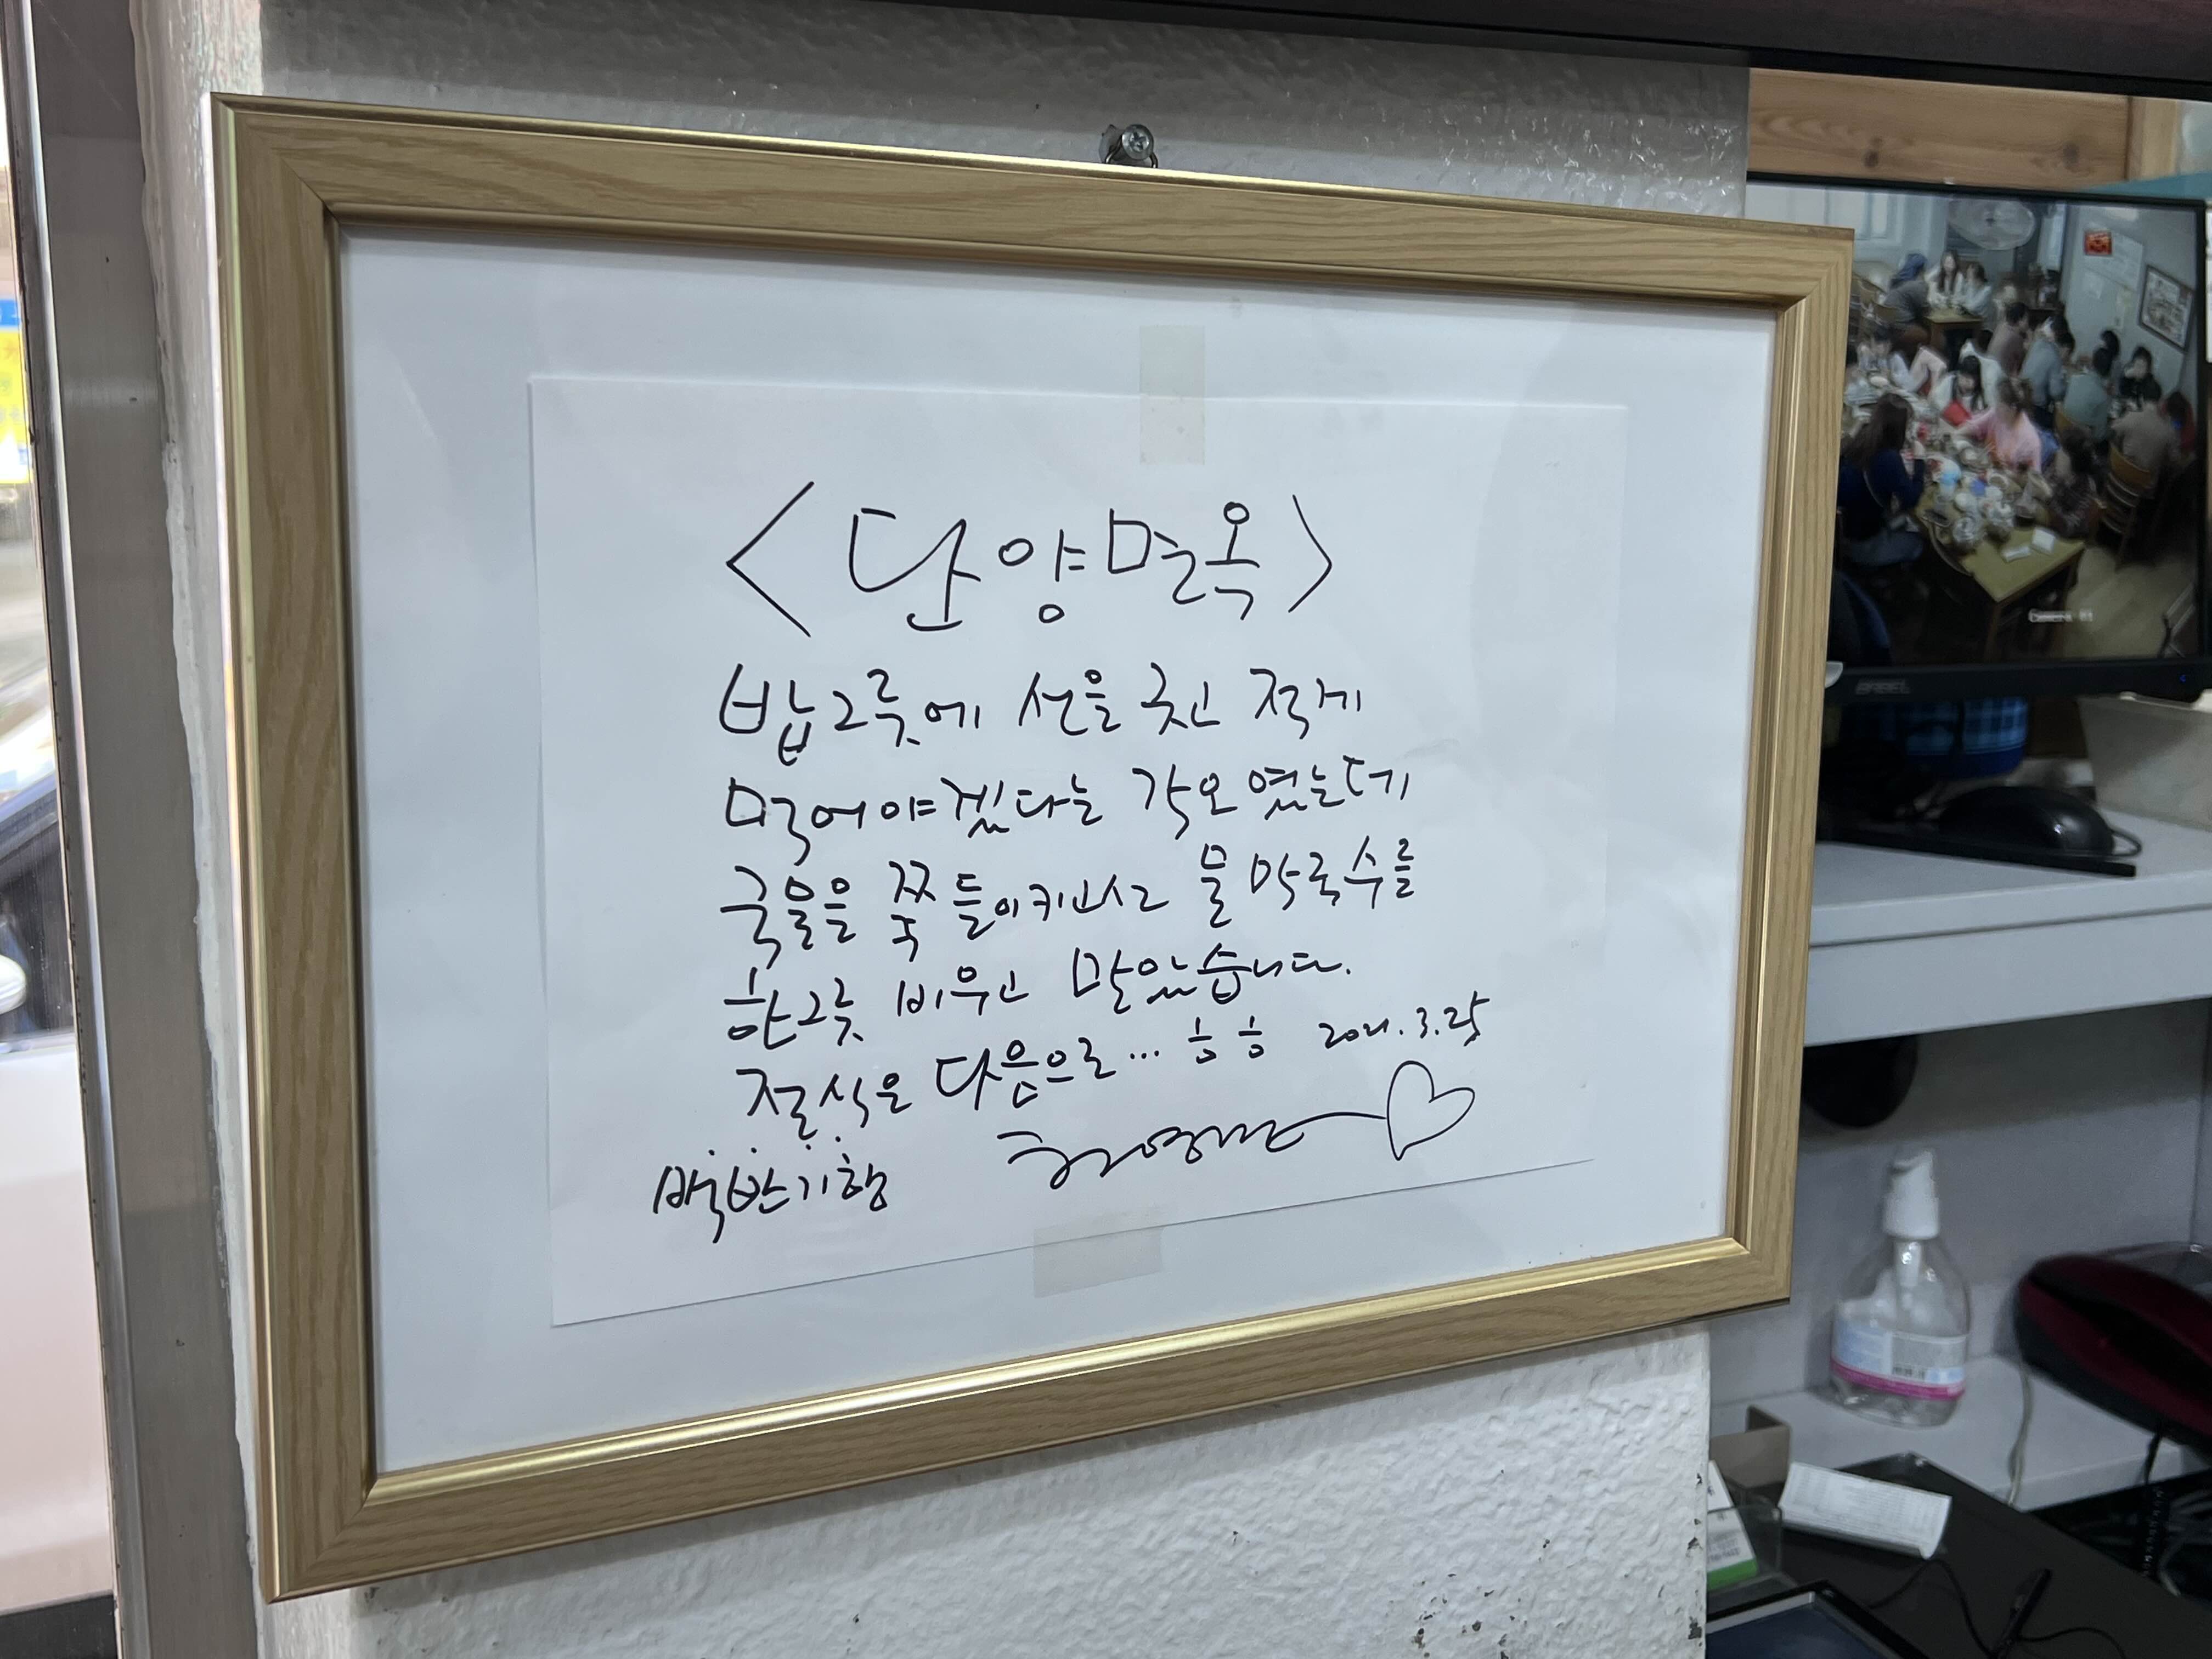 <단양면옥>
밥그릇에 선을 긋고 적게
먹어야겠다는 각오였는데
국물을 쭉 들이키고서 물막국수를
한그릇 비우고 말았습니다.
절식은 다음으로... 흐흐 2021.3.25
백반기행
Camera 01